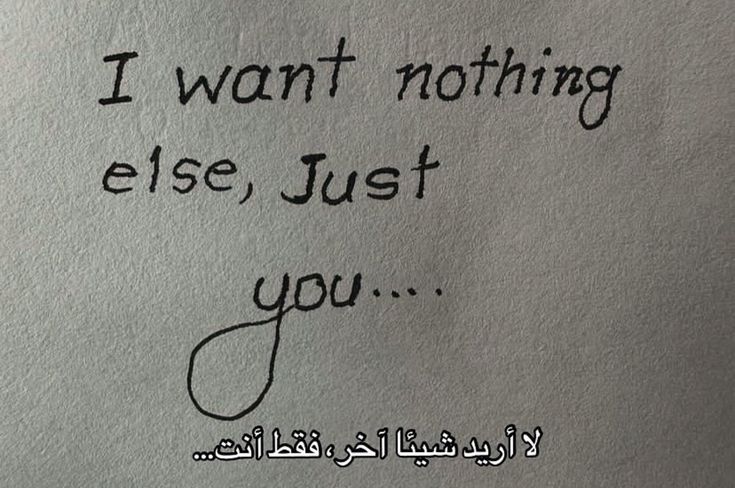 I want nothing
else, Just
you....
لا أريد شيئا آخر، فقط أنت...